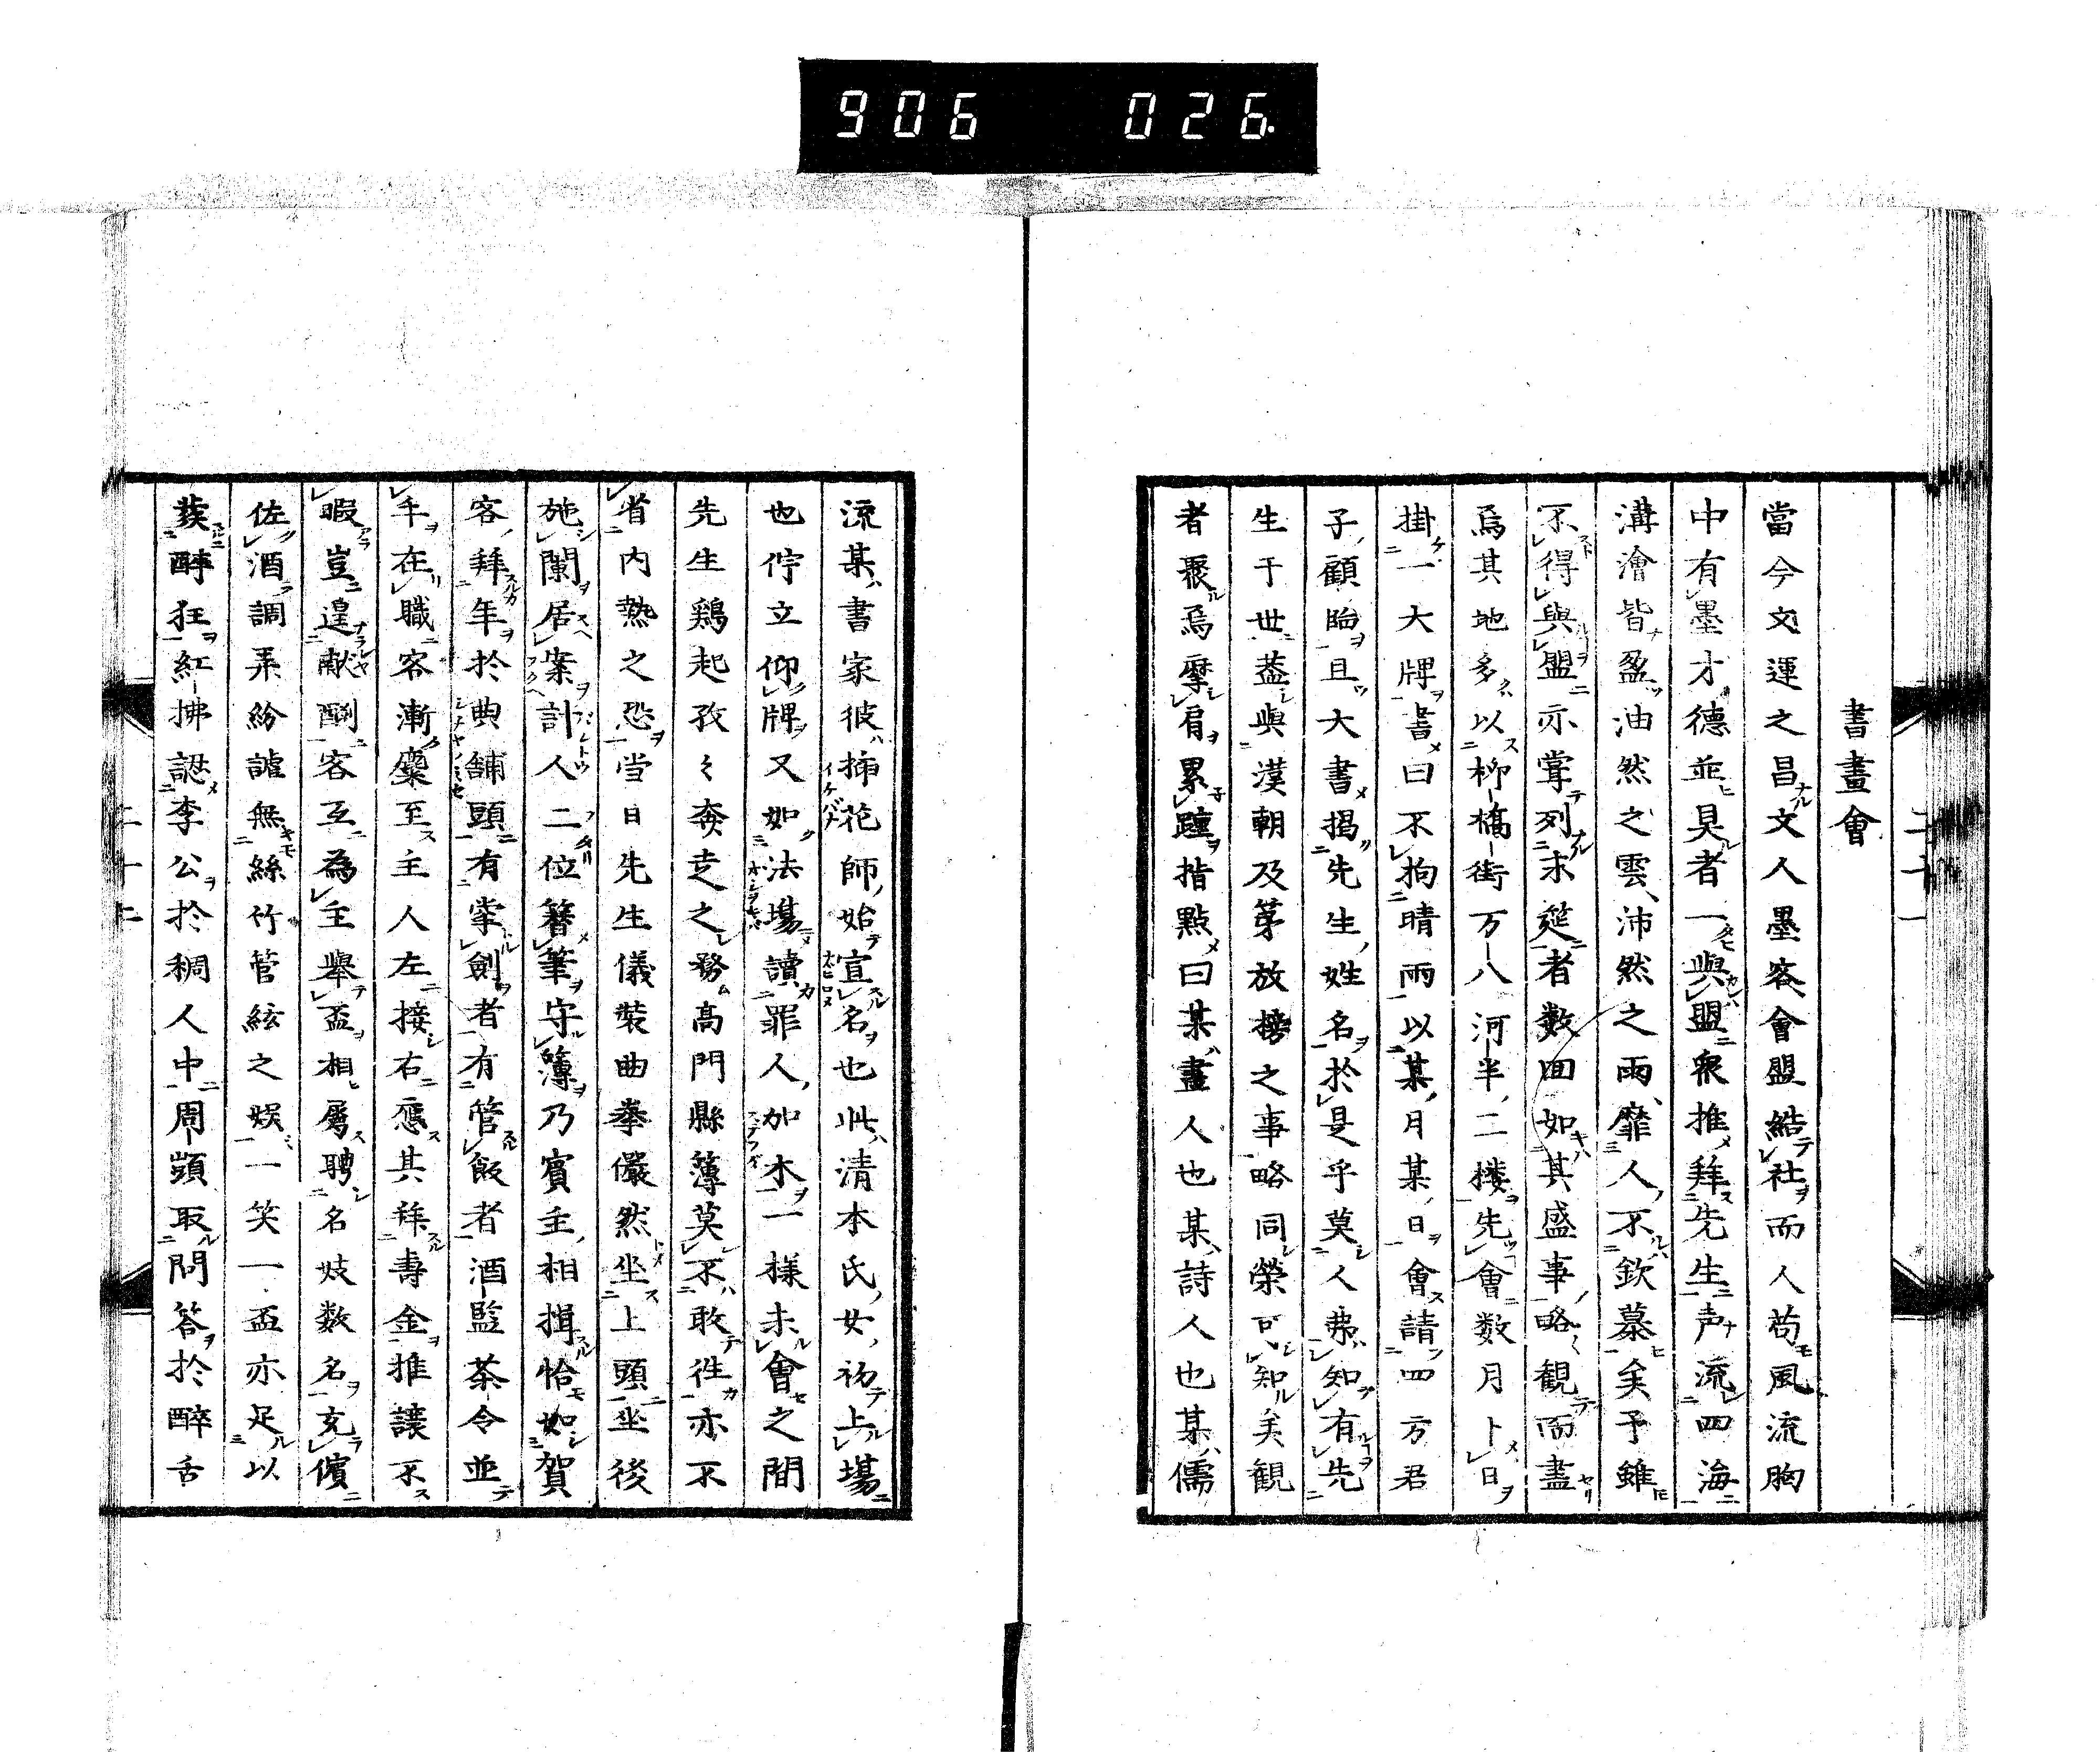 906 026
書畫會
當今文運之昌文人墨客會盟結社而人苟風流胸
中有墨才德並具者一與盟衆推拜先生声流四海
溝澮皆盈油然之雲沛然之雨靡人不欽慕矣予雖
不得與盟亦甞列末莚者数回如其盛事略観而盡
焉其地多以柳橋街万八河半二楼先會数月卜日
掛一大牌書曰不拘晴雨以某月某日會請四方君
子顧臨且大書掲先生姓名於是乎莫人弗知有先
生于世蓋與漢朝及苐放榜之事略同榮可知矣観
者聚焉摩肩累踵指點曰某畫人也某詩人也某儒
流某書家彼挿花師始宣名也此清本氏女初上場
也佇立仰牌又如法場讀罪人加木一様未會之間
先生鶏起孜々奔走之務高門縣薄莫不敢徃亦不
省内熱之恐当日先生儀裝曲拳儼然坐上頭坐後
施闌居案計人二位簪筆守簿乃賓主相揖恰如賀
客拜年於典舗頭有掌劍者有管飯者酒監茶令並
手在職客漸麇至主人左接右應其拜壽金推讓不
暇豈遑献酬客互為主舉盃相屬聘名妓数名充儐
佐酒調弄紛謔無絲竹管絃之娯一笑一盃亦足以
蓑酵狂紅拂認李公於稠人中周顗取問答於醉舌
二十一
二十二